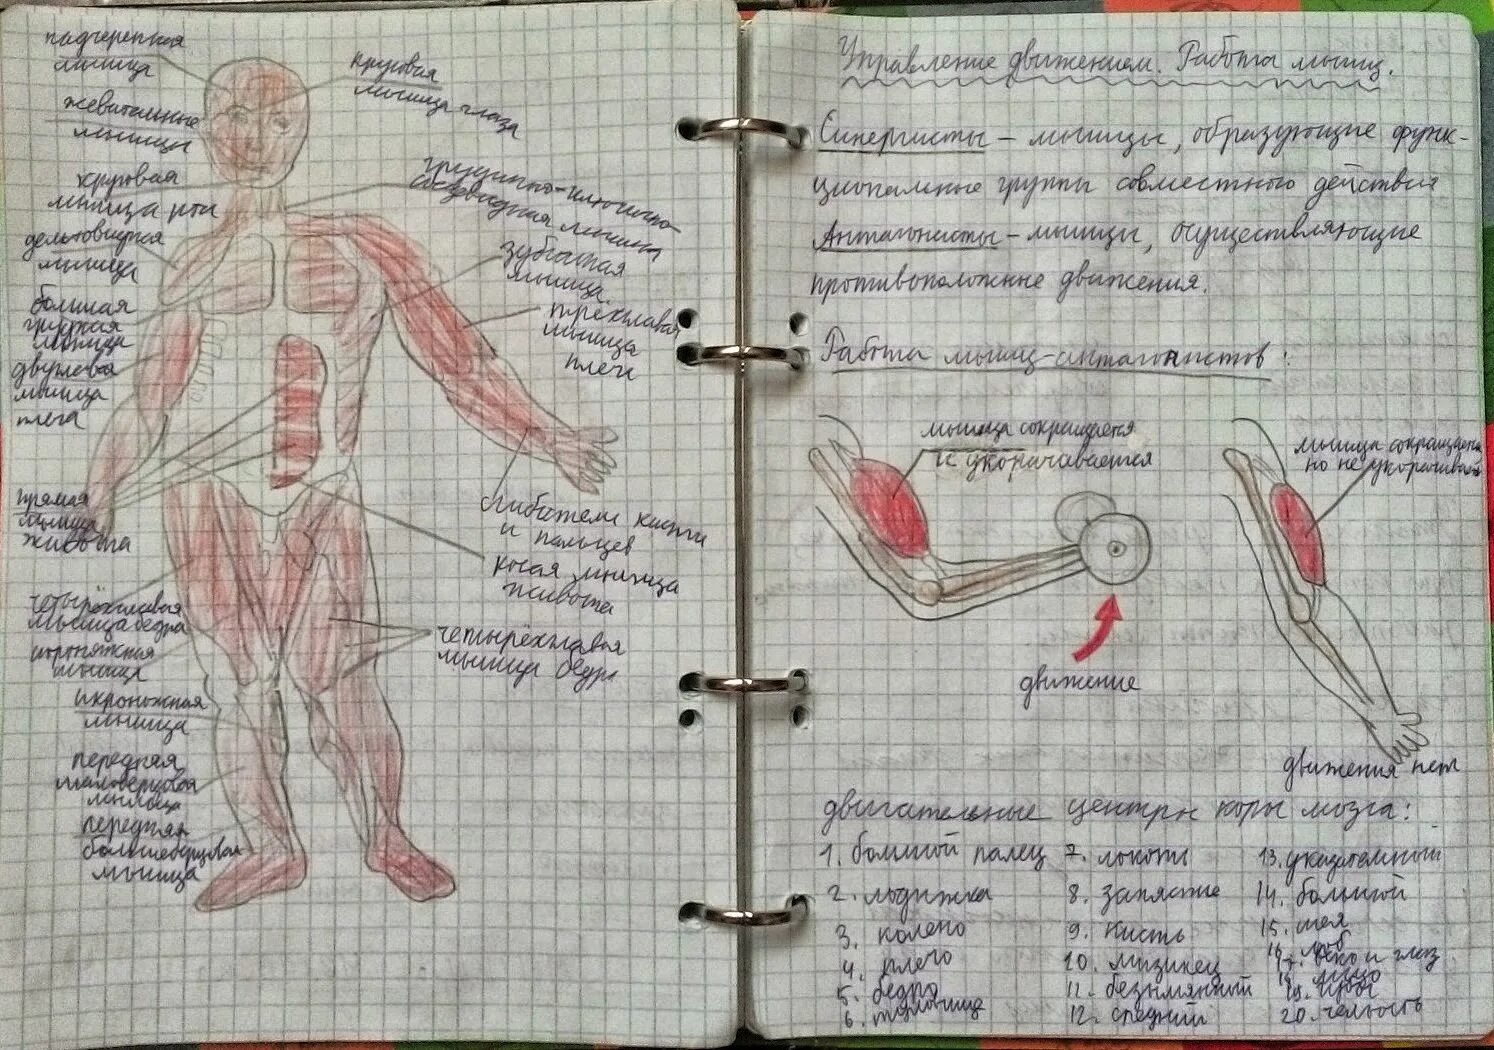 надчерепная
мышца
круговая
мышца глаза
жевательные
мышцы
круговая
мышца рта
грудинно-ключично-
сосцевидная мышца
дельтовидная
мышца
зубчатая
мышца
большая
грудная
мышца
трёхглавая
мышца
плеча
двуглавая
мышца
плеча
прямая
мышца
живота
сгибатели кисти
и пальцев
косая мышца
живота
четырёхглавая
мышца бедра
мышца
четырёхглавая
мышца бедра
икроножная
мышца
передняя
малоберцовая
мышца
передняя
большеберцовая
мышца
Управление движением. Работа мышц.
Синергисты – мышцы, образующие функ-
циональные группы совместного действия
Антагонисты – мышцы, осуществляющие
противоположные движения.
Работа мышц-антагонистов:
мышца сокращается
и укорачивается
мышца сокращается
но не укорачивается
движение
движения нет
двигательные центры коры мозга:
1. большой палец
2. лодыжка
3. колено
4. плечо
5. бедро
6. туловище
7. локоть
8. запястье
9. кисть
10. мизинец
11. безымянный
12. средний
13. указательный
14. большой
15. шея
16. лоб
17. веко и глаз
18. лицо
19. губы
20. челюсть